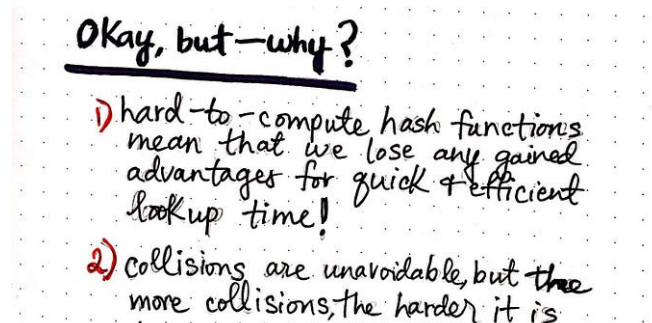 Okay, but—why?
1) hard-to-compute hash functions
mean that we lose any gained
advantages for quick & efficient
lookup time!
2) collisions are unavoidable, but the
more collisions, the harder it is